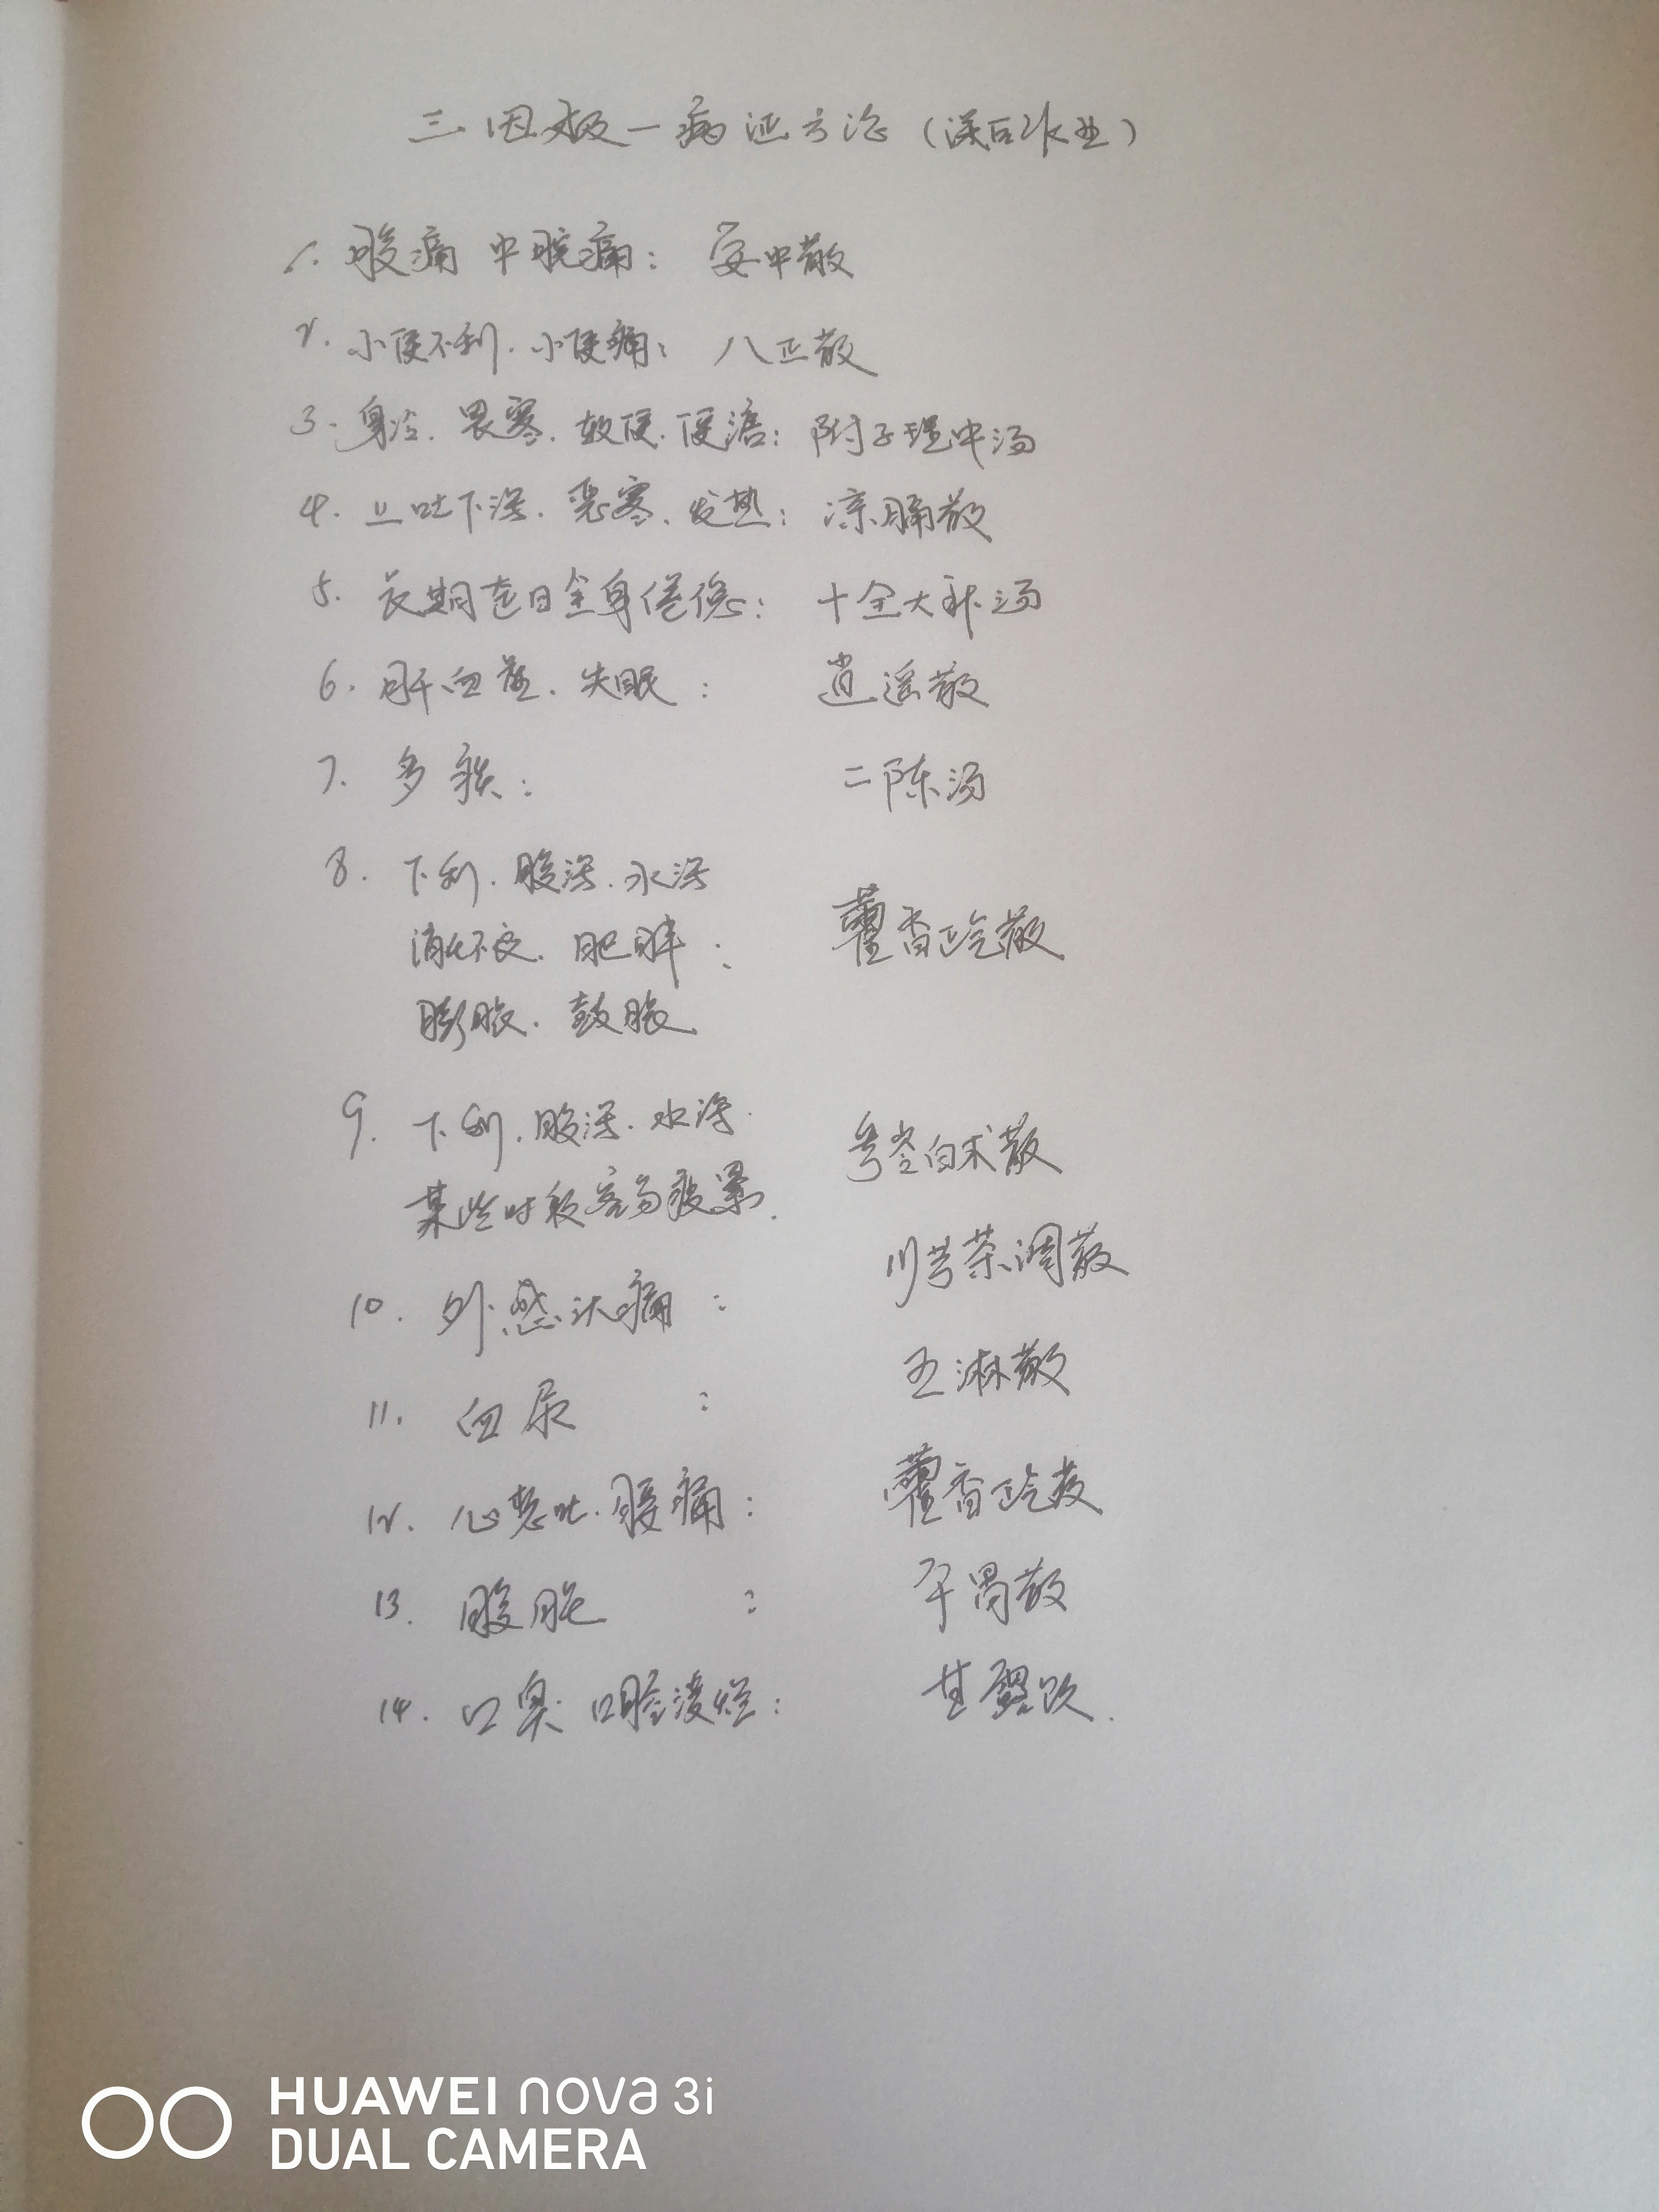 三因极一病证方论（课后作业）
1. 腹痛 中脘痛： 安中散
2. 小便不利. 小便痛： 八正散
3. 身冷. 畏寒. 软便. 便溏： 附子理中汤
4. 上吐下泻. 恶寒. 发热： 凉膈散
5. 长期连日全身倦怠： 十全大补汤
6. 肝血虚. 失眠： 逍遥散
7. 多痰： 二陈汤
8. 下利. 腹泻. 水泻
消化不良. 肥胖： 藿香正气散
膨胀. 鼓胀
9. 下利. 腹泻. 水泻. 参苓白术散
某些时段容易疲累.
10. 外感头痛： 川芎茶调散
11. 血尿： 五淋散
12. 心恶吐. 腹痛： 藿香正气散
13. 腹胀： 平胃散
14. 口臭 口腔溃烂： 甘露饮.
HUAWEI nova 3i
DUAL CAMERA